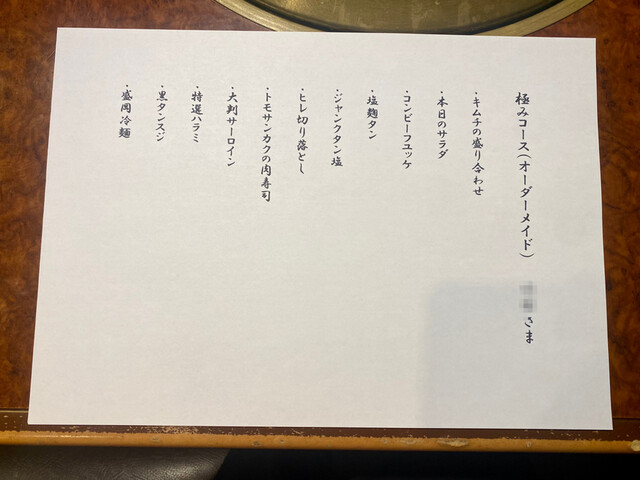 極みコース(オーダーメイド) さま
・キムチの盛り合わせ
・本日のサラダ
・コンビーフユッケ
・塩麹タン
・ジャンクタン塩
・ヒレ切り落とし
・トモサンカクの肉寿司
・大判サーロイン
・特選ハラミ
・黒タンスジ
・盛岡冷麺